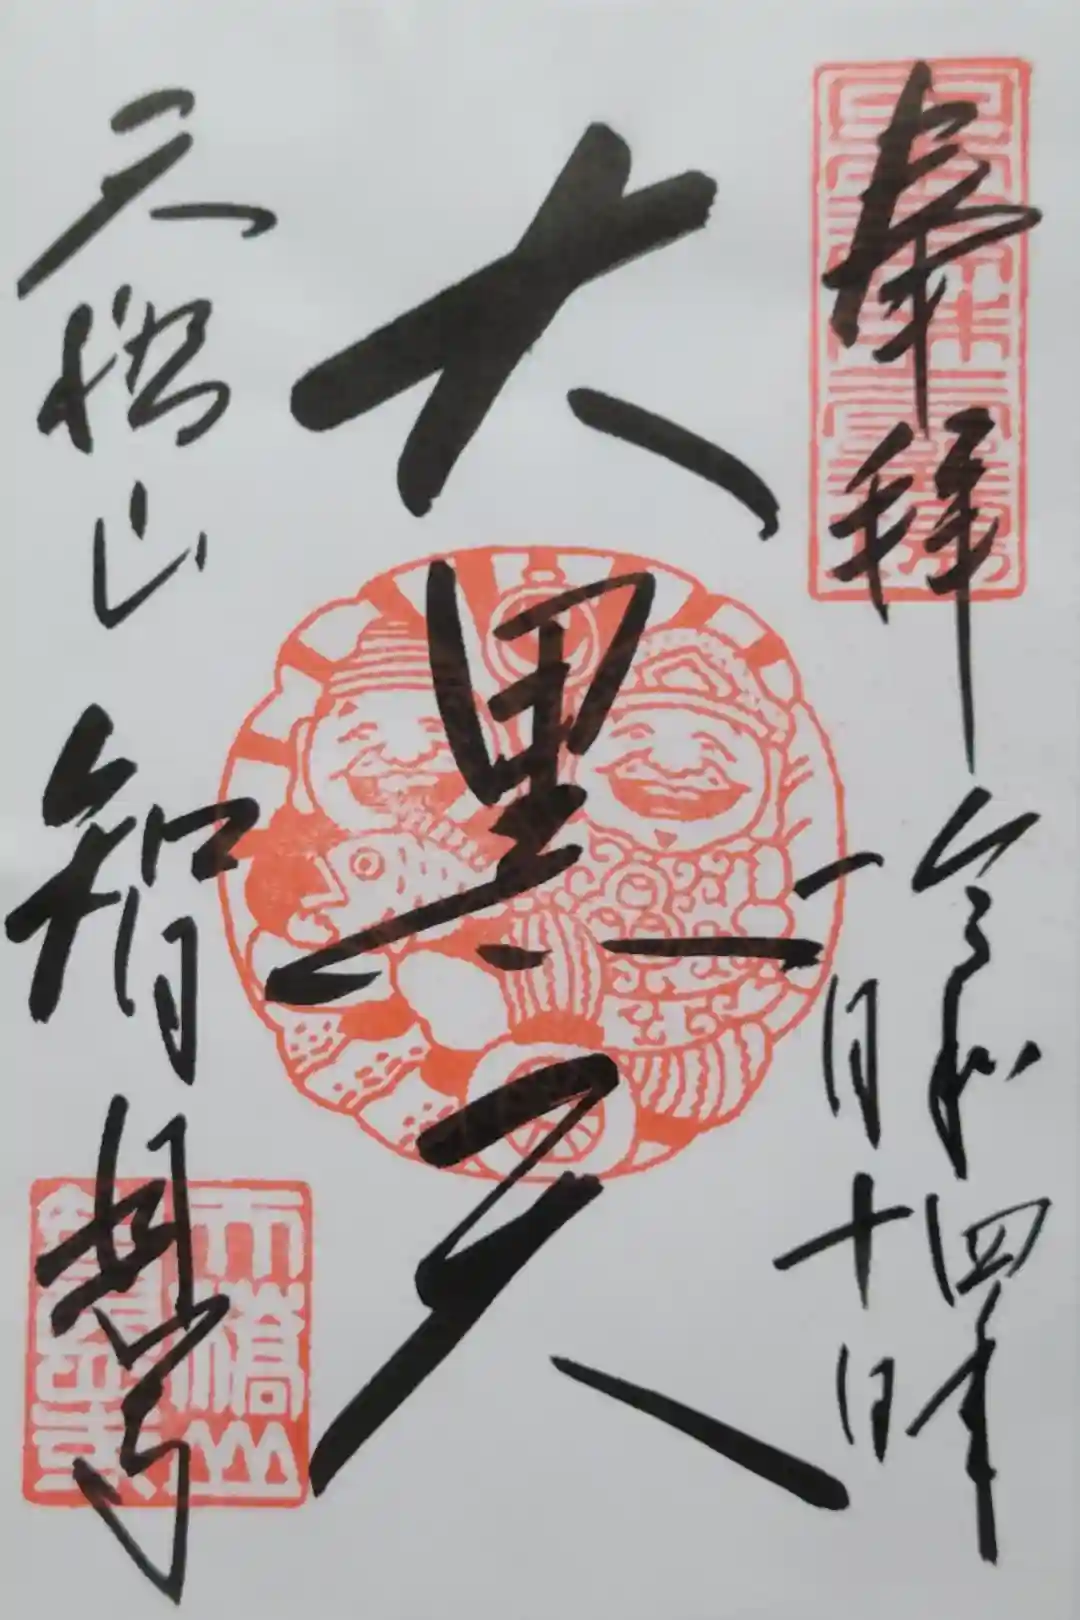 奉拝
令和四年
一月十日
大黒天
天橋山
智恩寺
天橋山